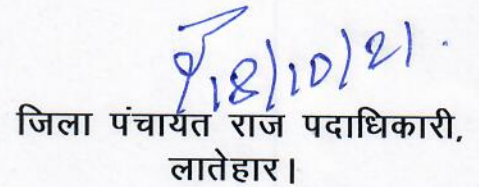 18/10/21.
जिला पंचायत राज पदाधिकारी,
लातेहार।